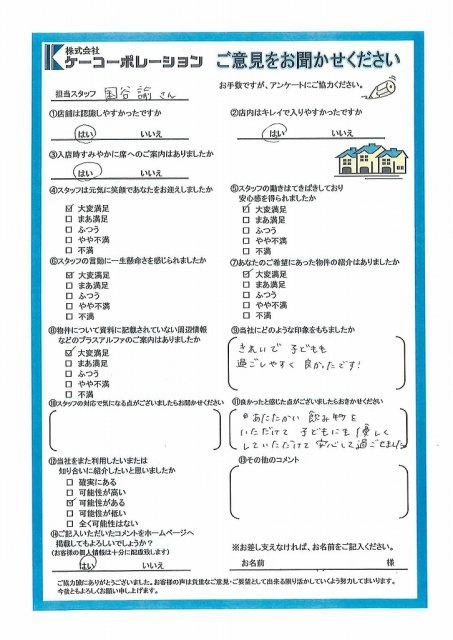 株式会社
ケーコーポレーション
ご意見をお聞かせください
お手数ですが、アンケートにご協力ください。
担当スタッフ 国谷 諭 さん
①店舗は認識しやすかったですか
はい いいえ
②店内はキレイで入りやすかったですか
はい いいえ
③入店時すみやかに席へのご案内はありましたか
はい いいえ
④スタッフは元気に笑顔であなたをお迎えしましたか
☑ 大変満足
□ まあ満足
□ ふつう
□ やや不満
□ 不満
⑤スタッフの動きはてきぱきしており
安心感を得られましたか
☑ 大変満足
□ まあ満足
□ ふつう
□ やや不満
□ 不満
⑥スタッフの言動に一生懸命さを感じられましたか
☑ 大変満足
□ まあ満足
□ ふつう
□ やや不満
□ 不満
⑦あなたのご希望にあった物件の紹介はありましたか
☑ 大変満足
□ まあ満足
□ ふつう
□ やや不満
□ 不満
⑧物件について資料に記載されていない周辺情報
などのプラスアルファのご案内はありましたか
☑ 大変満足
□ まあ満足
□ ふつう
□ やや不満
□ 不満
⑨当社にどのような印象をもちましたか
きれいで 子どもも
過ごしやすく 良かったです!
⑩スタッフの対応で気になる点がございましたらお聞かせください
⑪良かったと感じた点がございましたらおきかせください
あたたかい 飲み物を
いただけて 子どもにも優しく
していただけて 安心して過ごせました
⑫当社をまた利用したいまたは
知り合いに紹介したいと思いましたか
□ 確実にある
□ 可能性が高い
☑ 可能性がある
□ 可能性が低い
□ 全く可能性はない
⑬その他のコメント
⑭ご記入いただいたコメントをホームページへ
掲載してもよろしいでしょうか?
(お客様の個人情報は十分に配慮致します)
はい いいえ
※お差し支えなければ、お名前をご記入ください。
お名前 様
ご協力誠にありがとうございました。お客様の声は貴重なご意見・ご要望として出来る限り活かしていくよう努力してまいります。
今後ともよろしくお願い申し上げます。